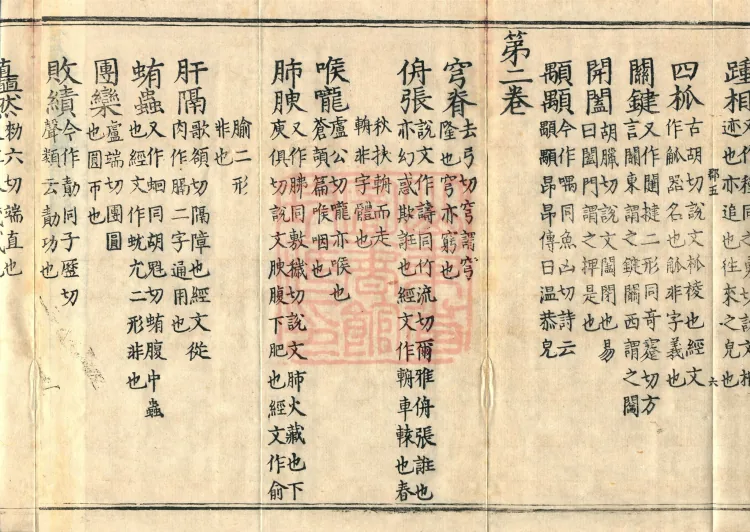 踵相 同之勇切說文相
迹也亦追也往來之皃也
郡五
六
四柧 古胡切說文柧棱也經文
作觚器名也觚非字義也
關鍵 又作闥揵二形同奇蹇切方
言關東謂之鍵關西謂之闟
開闔 胡臘切說文闔閉也易
曰闔門謂之押是也
顒顒 今作喁同魚凶切詩云
顒顒昂昂傳曰温恭皃
第二卷
穹脊 去弓切穹謂穹
隆也穹亦窮也
侜張 說文作譸同竹流切爾雅侜張誑也
亦幻惑欺誑也經文作輈車轅也春
秋挾輈而走
輈非字體也
喉嚨 盧公切嚨亦喉也
蒼頡篇喉咽也
肺腴 又作胇同敷穢切說文肺火藏也下
庾俱切說文腴腹下肥也經文作俞
腧二形
非也
肝隔 歌頷切隔障也經文從
肉作膈二字通用也
蛕蟲 又作蛔同胡魁切蛕腹中蟲
也經文作蚘亢二形非也
團欒 盧端切團圓
也圓帀也
敗績 今作勣同子歷切
聲類云勣功也
敕六切端直也